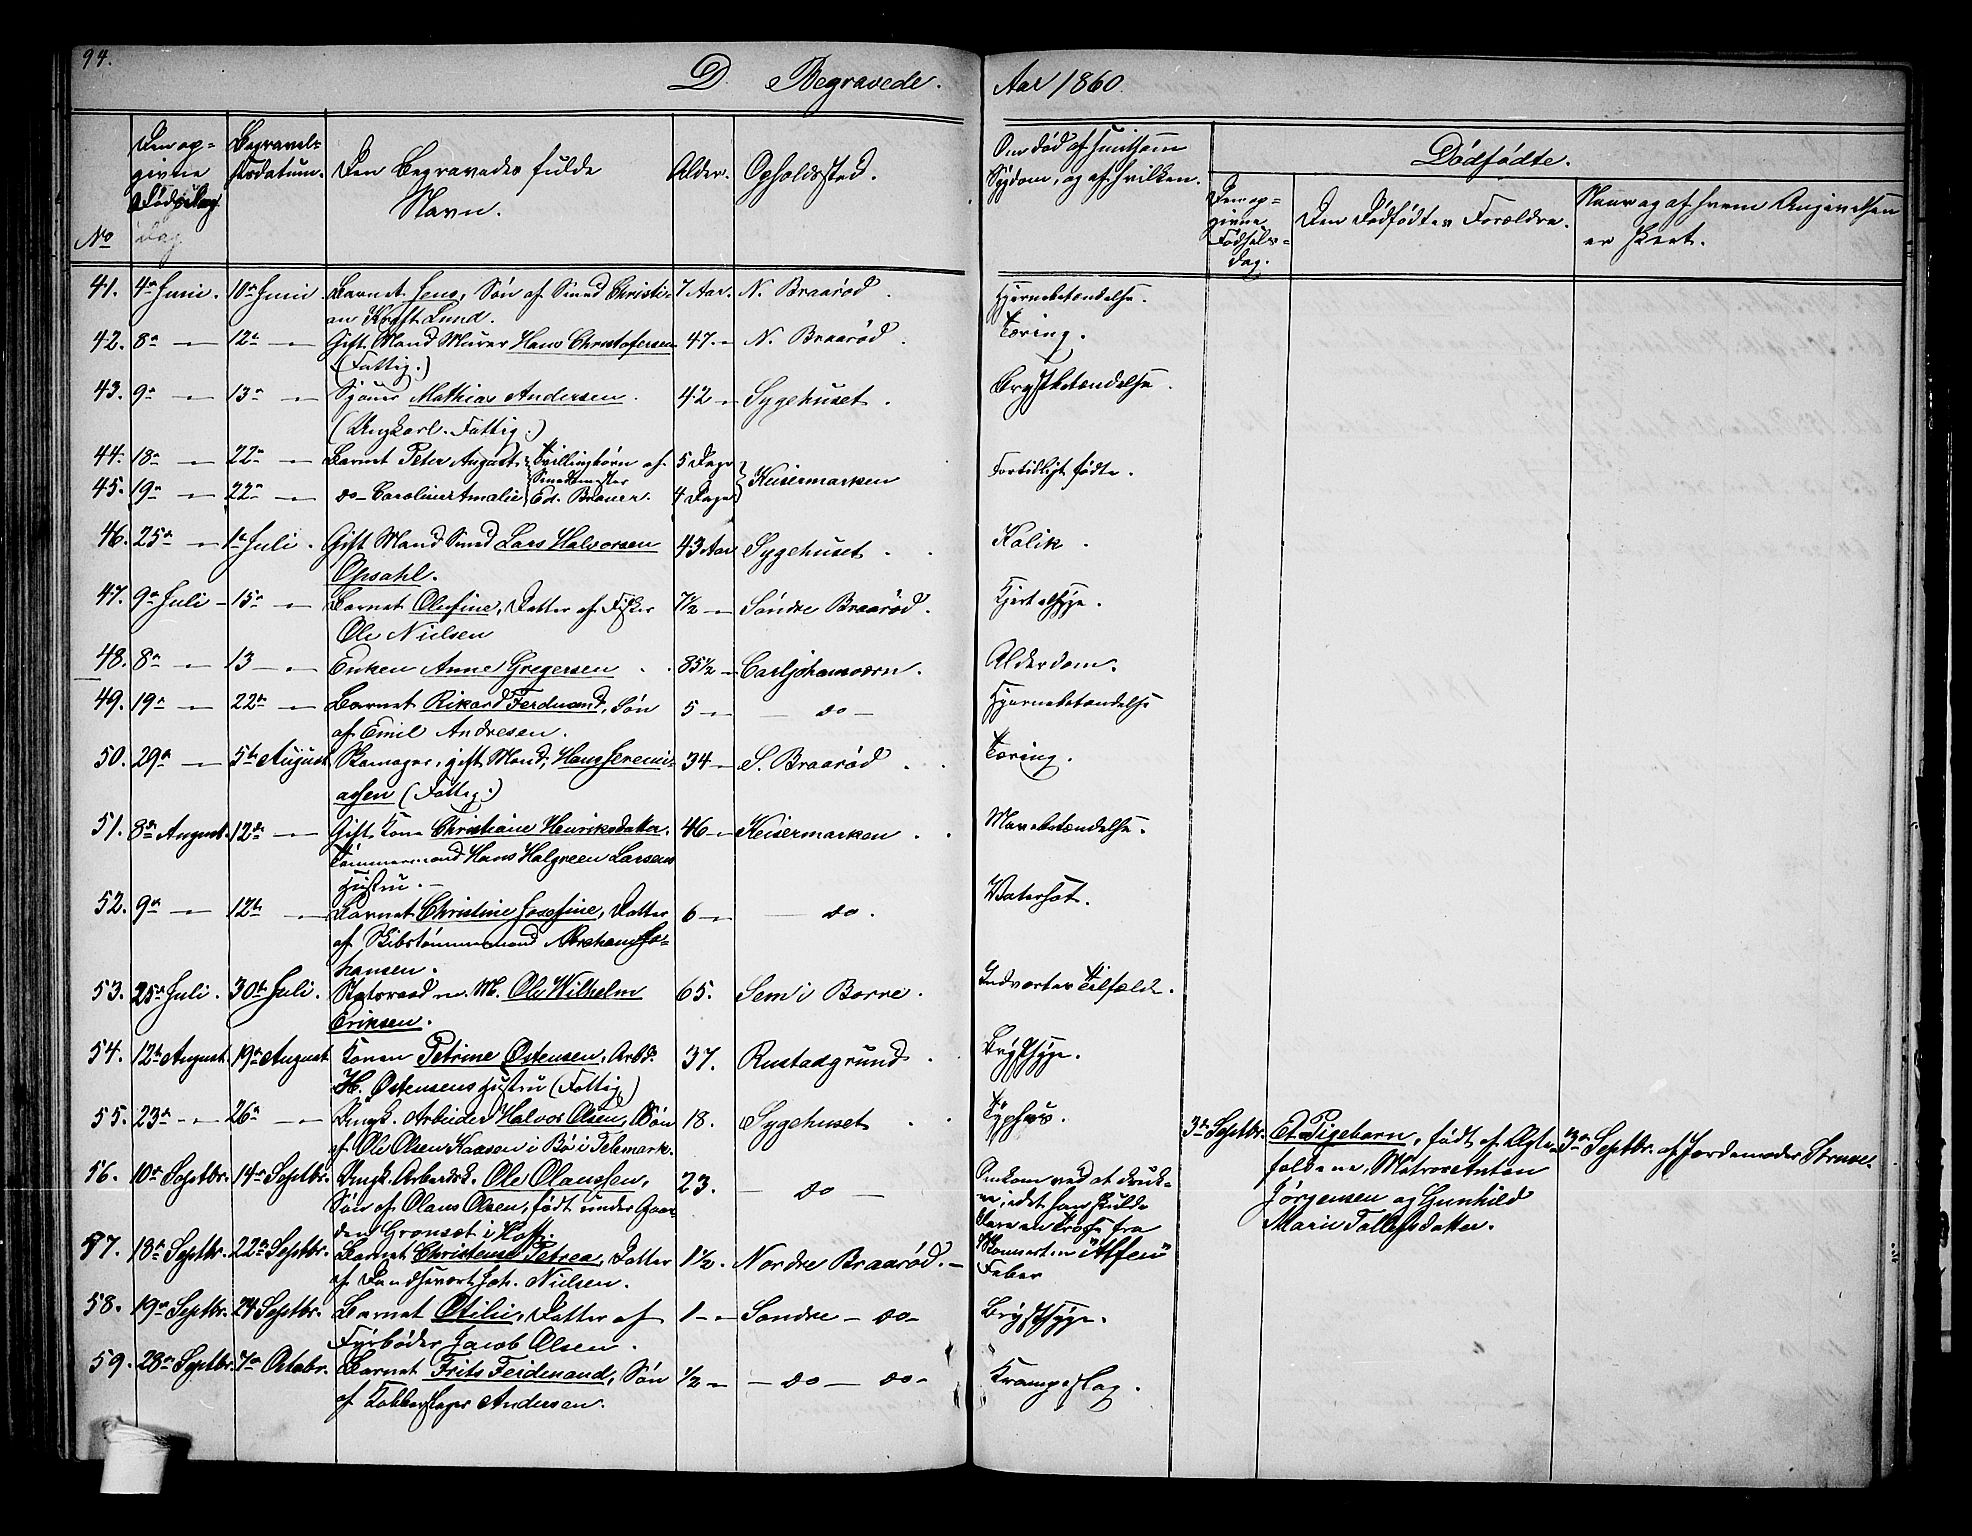 94.
D. Begravede. Aar 1860.
No
Den op-
givne
Dødsdag
Dag
Begravel-
sesdatum.
Den Begravedes fulde
Navn.
Alder.
Opholdssted.
Om død af smitsom
Sygdom, og af hvilken.
Dødfødte.
Den op-
givne
Fødsels-
dag.
Den Dødfødtes Forældre.
Naar og af hvem Angivelsen
er skeet.
41. 4de Juni. 10de Juni Barnet Jens, Søn af Smed Christi- 7 Aar. N. Braarød. Hjernebetændelse.
an Kraft Lund.
42. 8de — 12te — Gift Mand Murer Hans Christofersen 47 - N. Braarød. Tæring.
(Fattig.)
43. 9de — 13de — Mathias Andersen. 42 - Sygehuset. Brystbetændelse.
(Ungkarl. Fattig.)
44. 18de — 22de — Barnet Peter August Tvillingbørn af 5 Dage Keisermarken Fortidligt fødte.
Smedmester
45. 19de — 22de — do Caroline Amalie Ed. Brauer. 4 Dage
46. 25de — 1ste Juli. Gift Mand Smed Lars Halvorsen 43 Aar Sygehuset. Kolik.
Opsahl.
47. 9de Juli - 15de — Barnet Olefine, Datter af Fisker 7½ - Søndre Braarød. Kjertelsyge.
Ole Nielsen
48. 8de — 13 — Enken Anne Gregersen 85½ - Carljohansværn. Alderdom.
49. 19de — 22de — Barnet Rikard Ferdinand, Søn 5 - — do — Hjernebetændelse
af Emil Andresen.
50. 29de — 5te August Skomager, gift Mand, Hans Jeremi- 34 - S. Braarød. Tæring.
assen (Fattig.)
51. 8de August. 12te — Gift Kone Christiane Henriksdatter. 46 - Keisermarken. Mavebetændelse.
Tømmermand Hans Halgreen Larsens
Hustru.
52. 9de — 12te — Barnet Christine Josefine, Datter 6 - — do. Vatersot.
af Skibstømmermand Abraham Jo-
hansen.
53. 25de Juli. 30te Juli. Statsraad m. M. Ole Wilhelm 65. Sem i Borre. Indvortes Tilfælde.
Eriksen.
54. 12te August. 19de August Konen Petrine Østensen, Arbd. 37. Rustadgrund. Brystsyge.
H. Østensens Hustru (Fattig)
55. 23de — 26de — Ungk. Arbeider Halvor Olsen, Søn 18. Sygehuset. Typhus.
af Ole Olsen Kaasen i Bø i Telemark.
3de Septbr. Et Pigebarn, født af Ægte- 3de Septbr. af Jordemoder Struve.
folkene, Matros Anton
Jørgensen og Gunhild
Marie Tollefsdatter.
56. 10de Septbr. 14de Septbr. Ungk. Arbeidsk. Ole Olaussen, 23. — do — Omkom ved at druk-
Søn af Olaus Olsen, født under Gaar- ne, idet han skulde
den Gronset i Hoff.
fra
57. 18de Septbr. 22de Septbr. Barnet Christense Petrea, Datter 1½. Nordre Braarød. — "Alfen"
af Joh. Nielsen. Feber
58. 19de Septbr. 24 Septbr. Barnet Otilie, Datter af 1 - Søndre — do - Brystsyge.
Fyrbøder Jacob Olsen.
59. 28de Septbr. 7de Octobr. Barnet Frits Ferdinand, Søn ½ - — do — do - Krampeslag.
af Kobberslager Andersen.